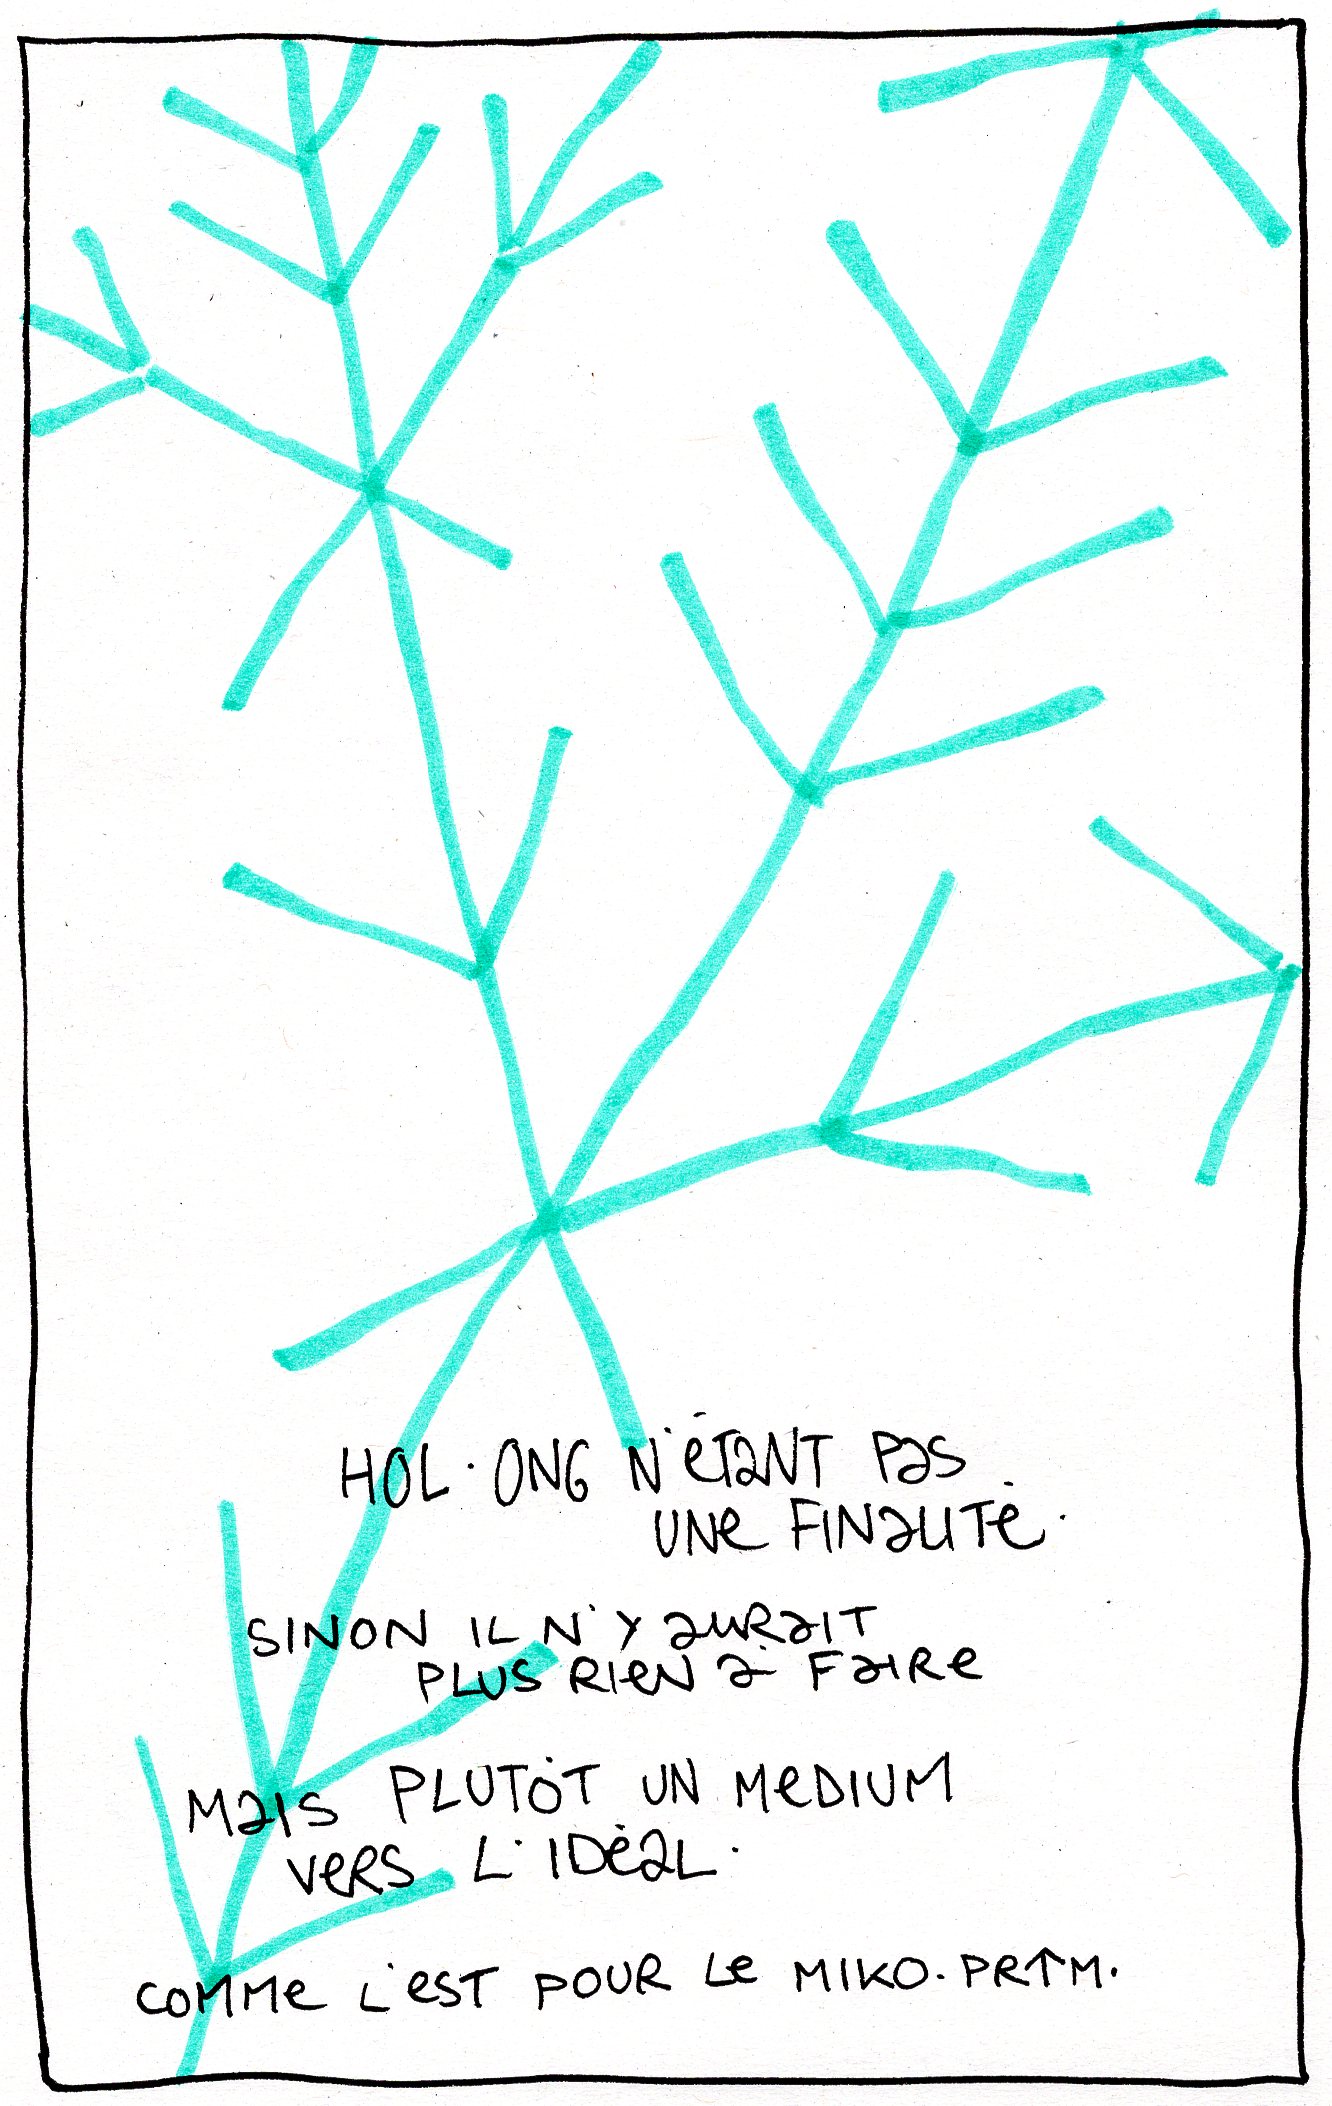 HOL·ONG N'ÉTANT PAS
UNE FINALITÉ.
SINON IL N'Y AURAIT
PLUS RIEN À FAIRE
MAIS PLUTÔT UN MEDIUM
VERS L'IDÉAL.
COMME L'EST POUR LE MIKO.PR↑M.